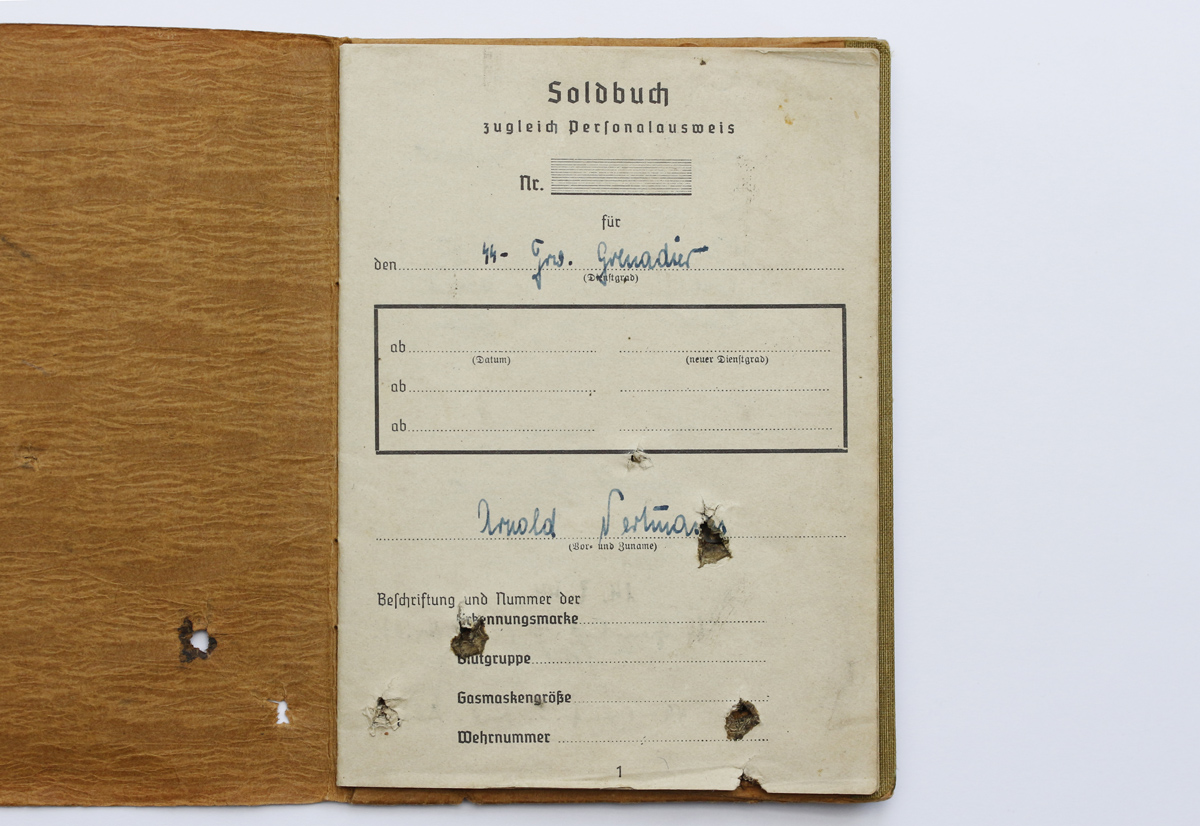 Soldbuch
zugleich Personalausweis
Nr.
für
den
Grenadier
(Dienstgrad)
ab
(Datum) (neuer Dienstgrad)
ab
ab
Arnold
(Vor- und Zuname)
Beschriftung und Nummer der
Erkennungsmarke
Blutgruppe
Gasmaskengröße
Wehrnummer
1